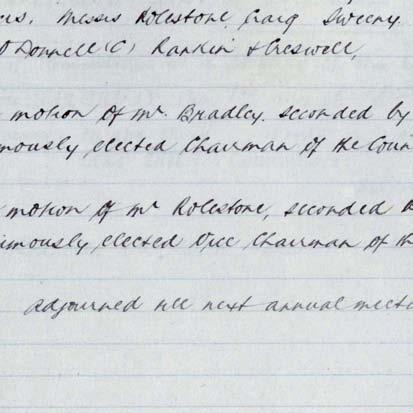 Messrs Rolestone, Craig Sweeny
O'Donnell (C) Rankin & Creswell,
motion of Mr. Bradley. seconded by
mously elected Chairman of the Coun
motion of Mr Rolestone, seconded
imously elected Vice Chairman of th
adjourned till next annual meeti